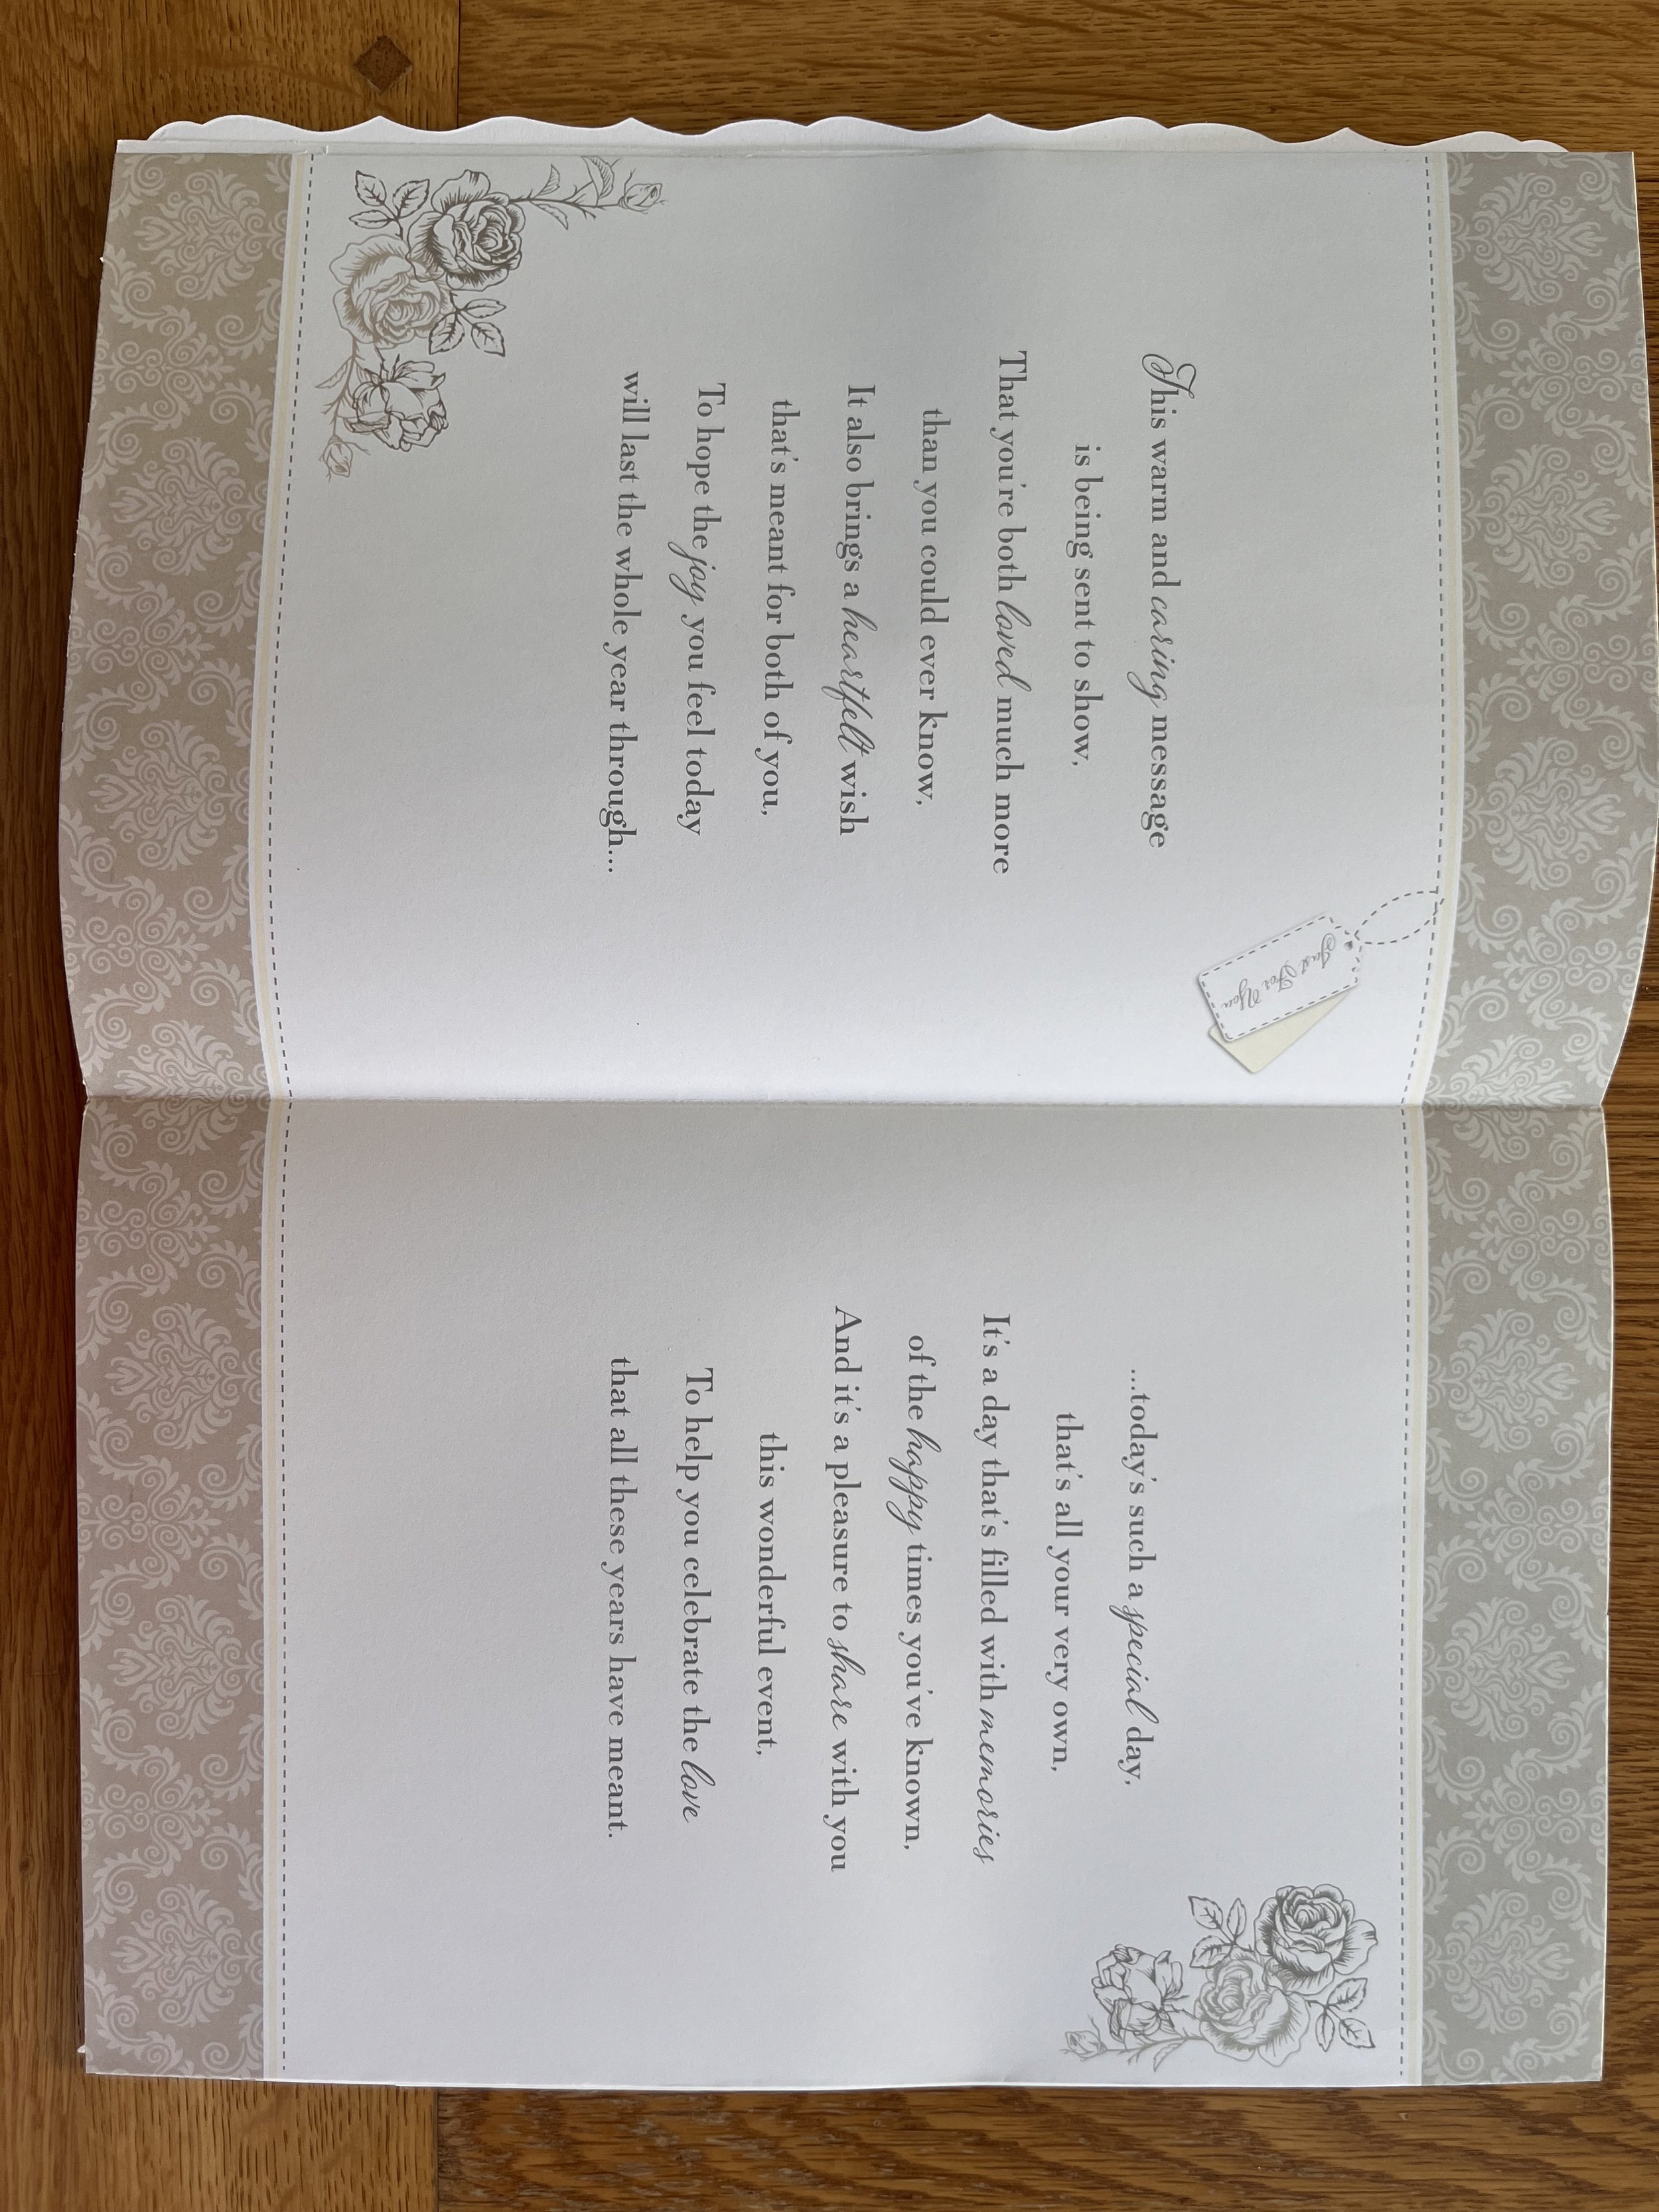 This warm and caring message
is being sent to show,
That you're both loved much more
than you could ever know,
It also brings a heartfelt wish
that's meant for both of you,
To hope the joy you feel today
will last the whole year through...
Just For You
...today's such a special day,
that's all your very own,
It's a day that's filled with memories
of the happy times you've known,
And it's a pleasure to share with you
this wonderful event,
To help you celebrate the love
that all these years have meant.